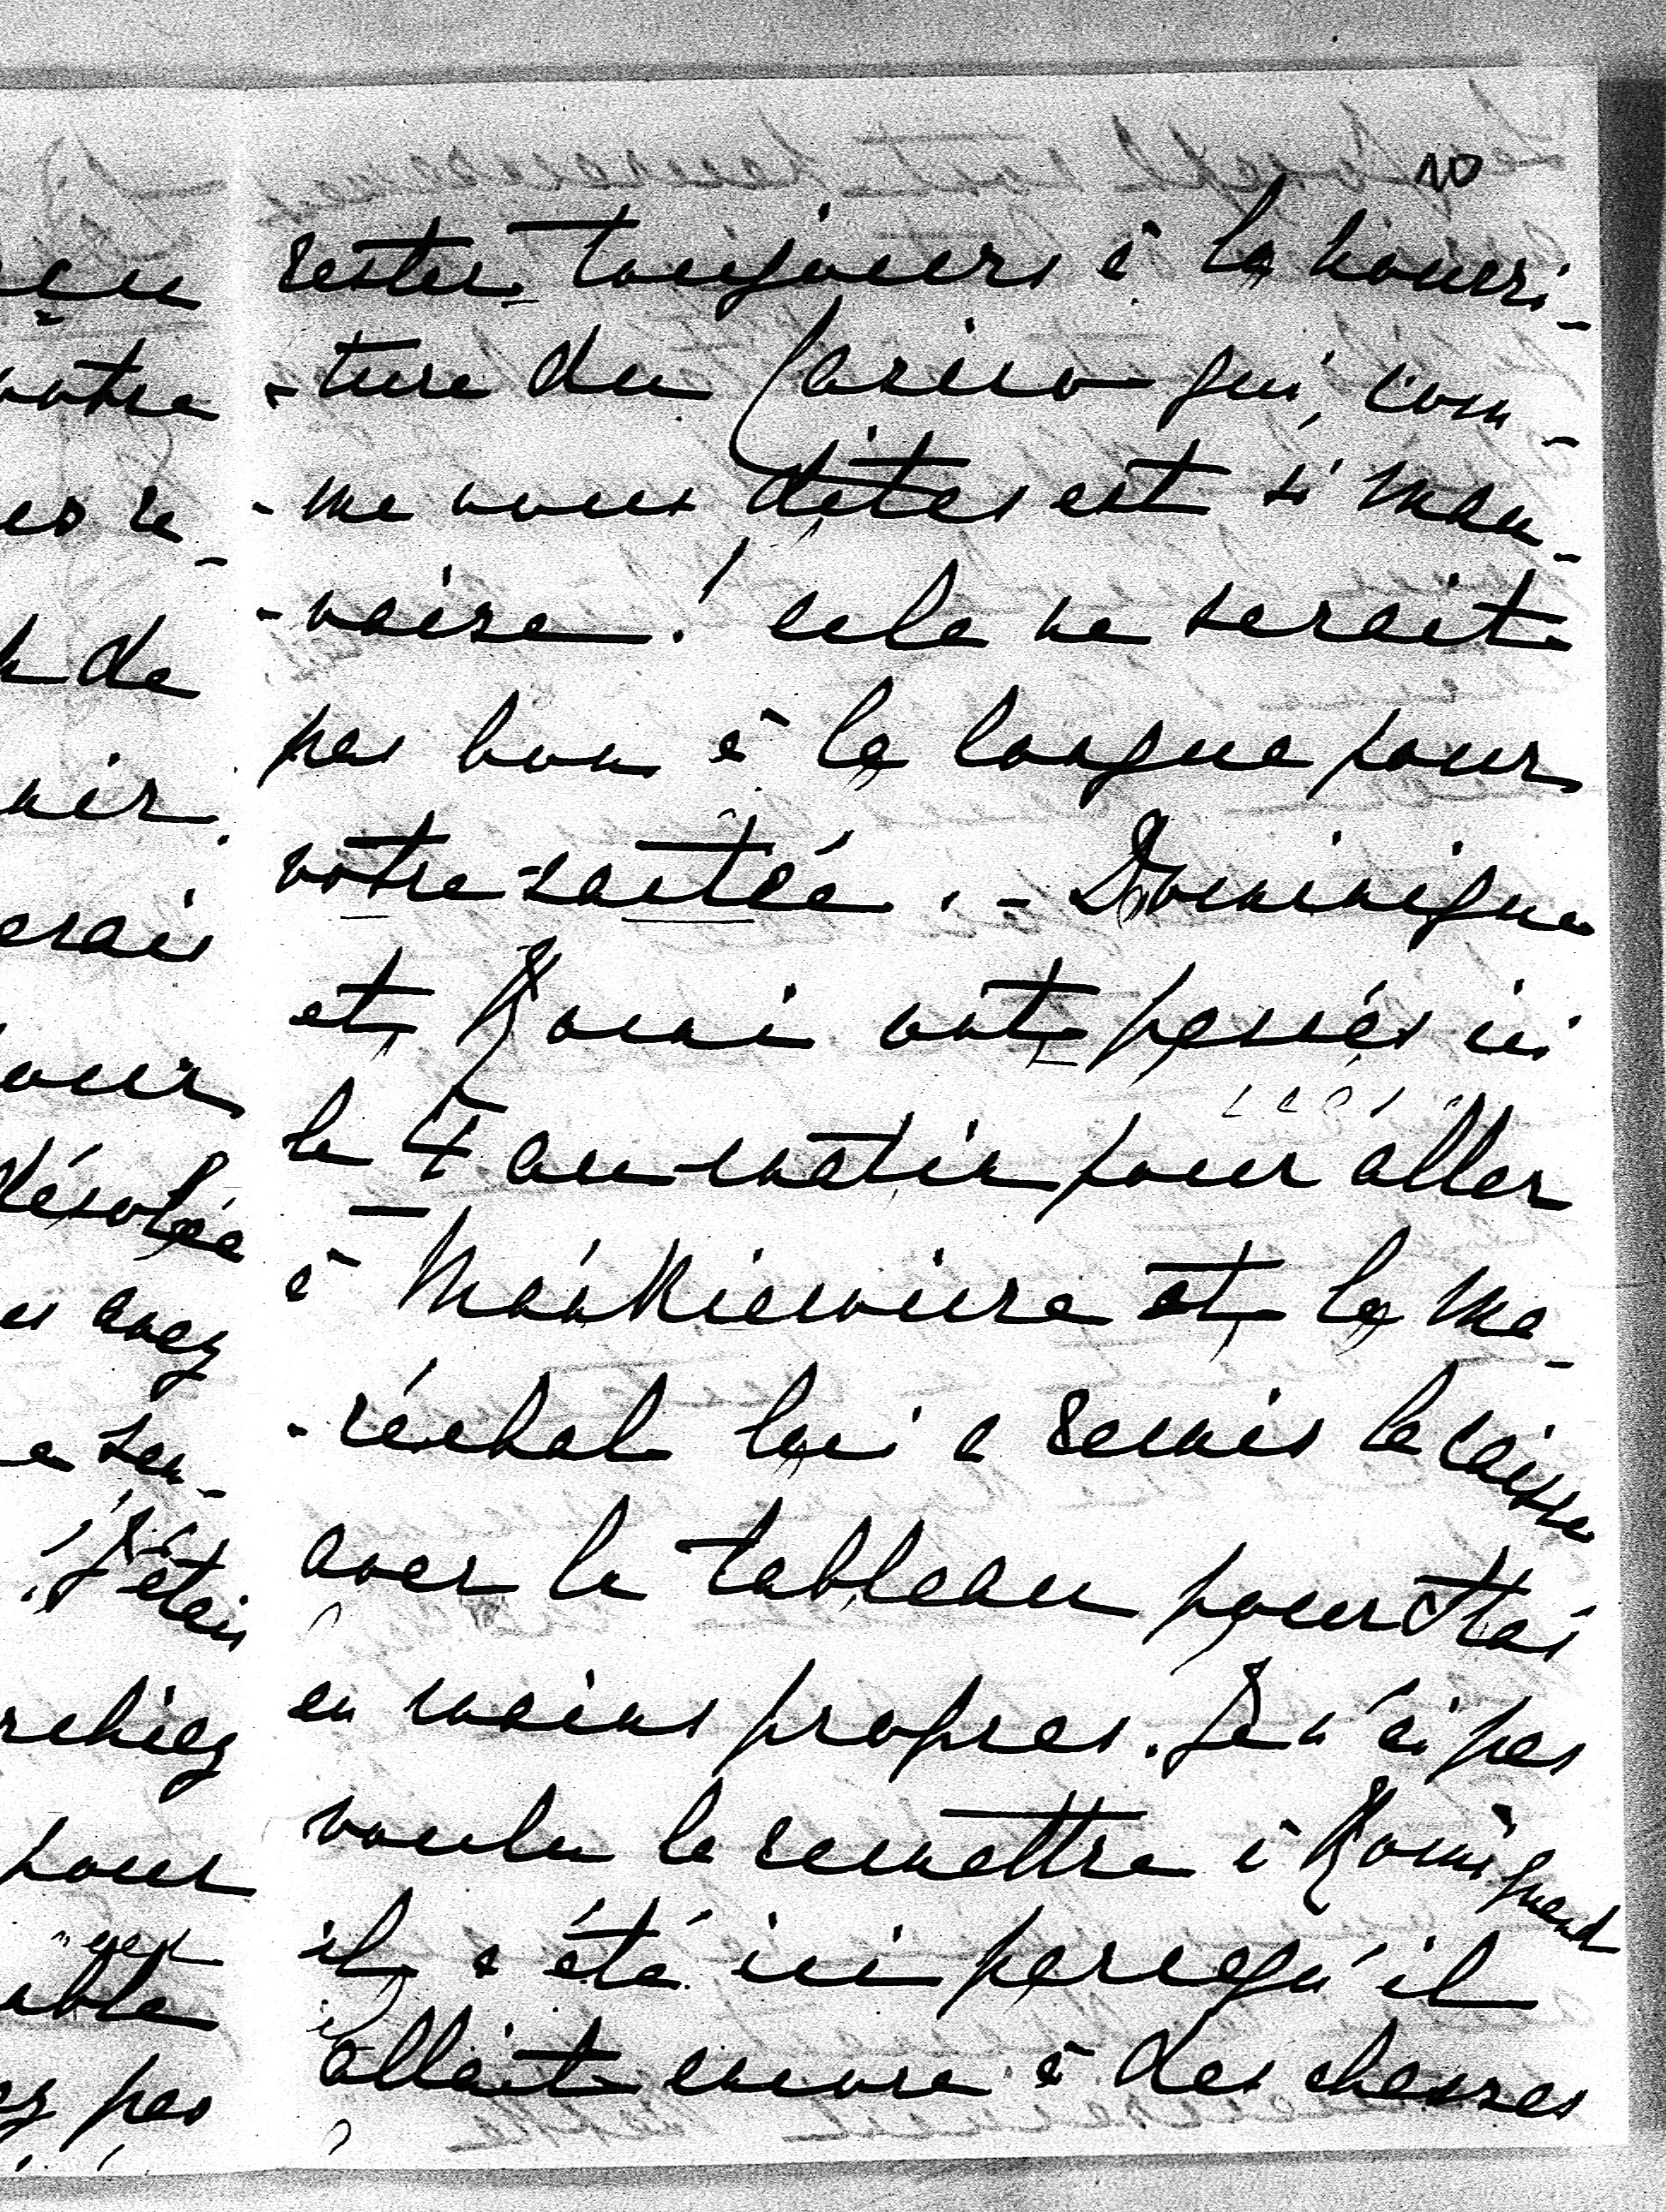 10
rester toujours à la nourri-
-ture du Casino qui, com-
-me vous dites est si mau-
-vaise! cela ne serait
pas bon à la longue pour
votre santée. - Dominique
et Romi ont passés ici
le 4 au matin pour aller
à et le ma-
-réchal lui a remis la caisse
avec le tableau pour
en mains propres. Je n'ai pas
voulu le remettre à Romi quand
il a été ici parcequ'il
allait encore à des chasses
votre
de
erais
our
désolée
es avez
e sen-
j'étais
rchiez
pour
able
ez pas